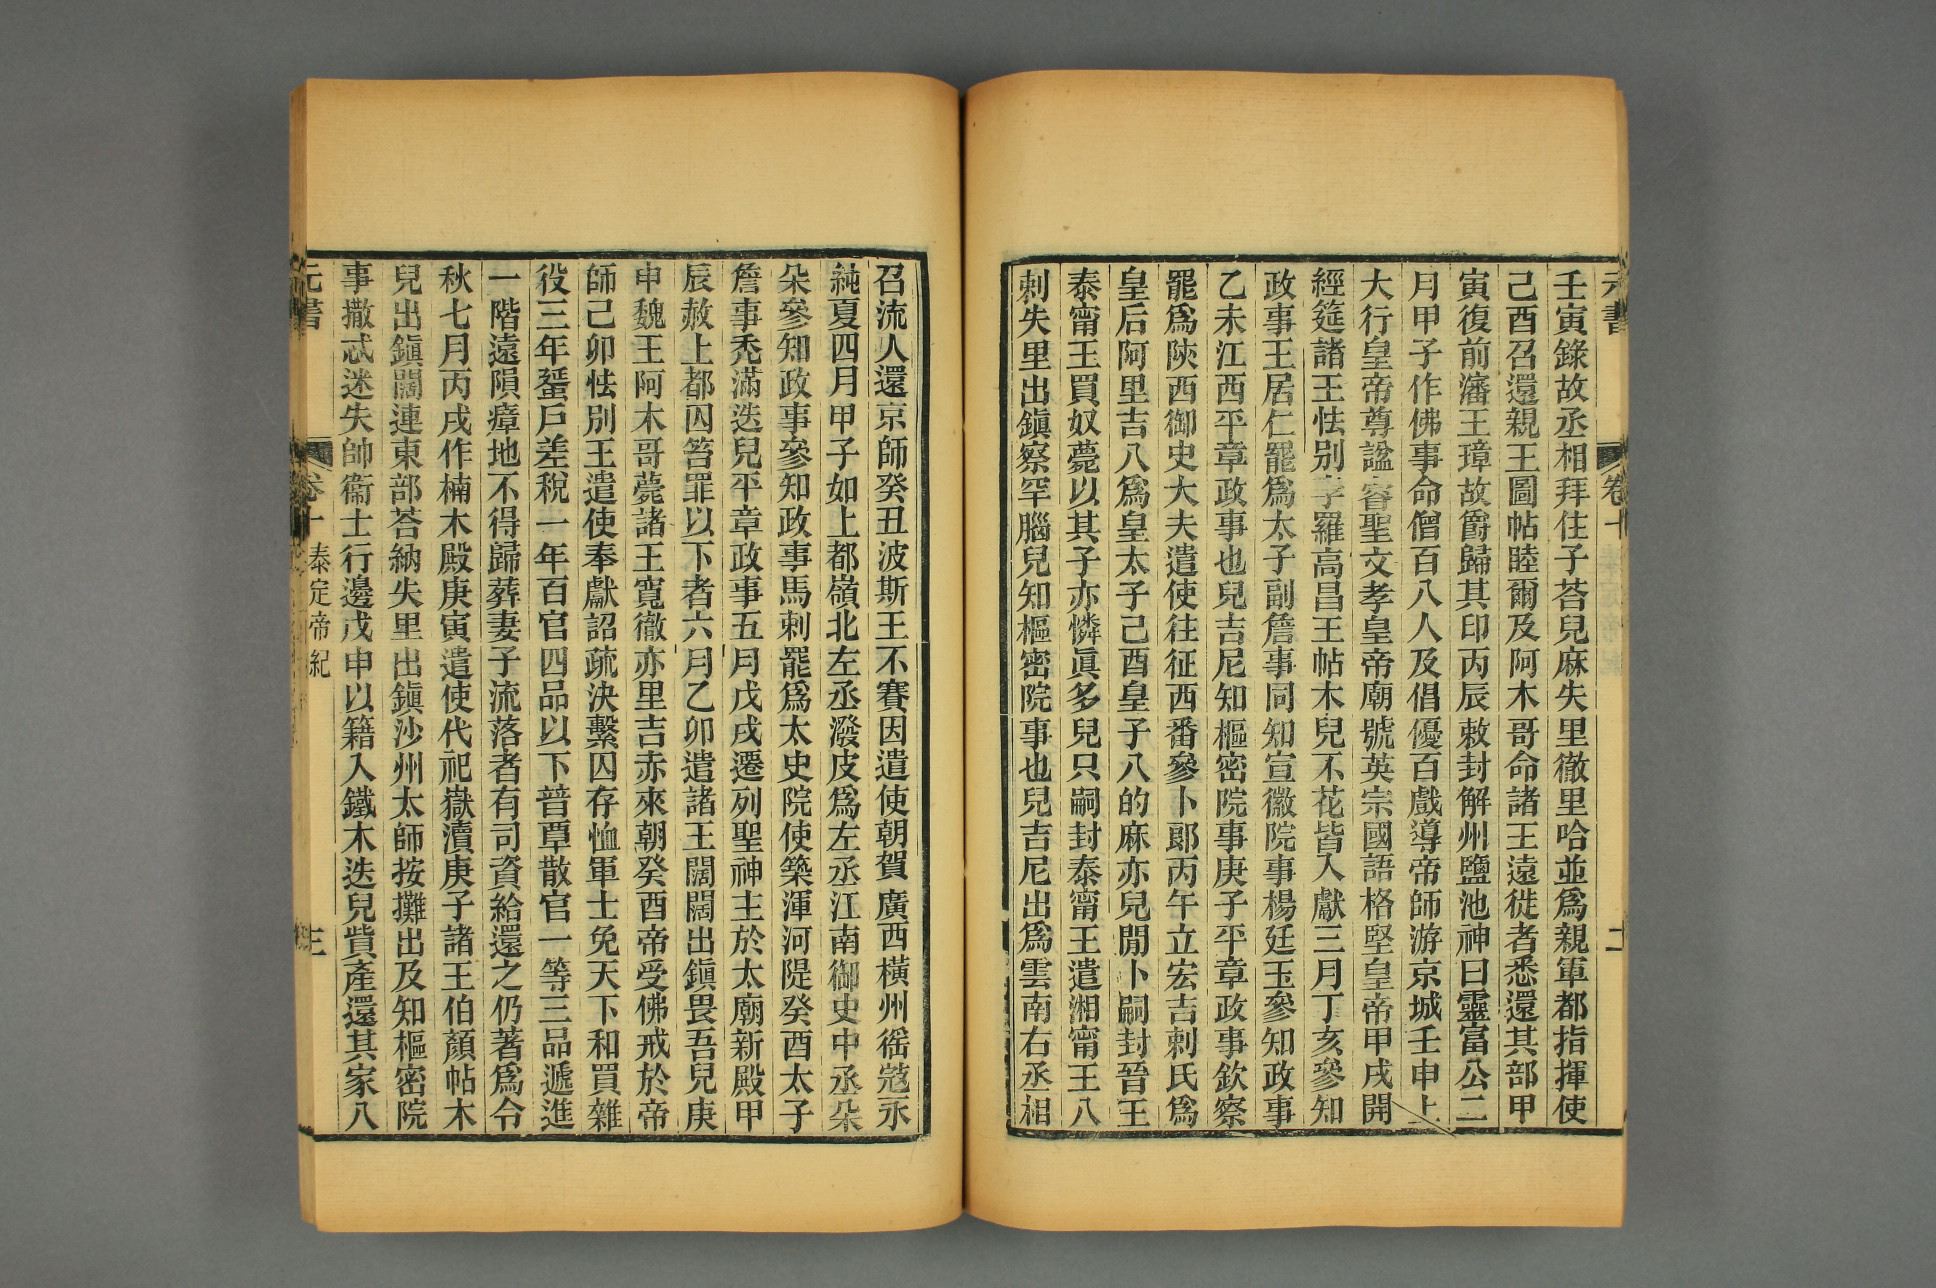 元書
卷十
二
壬寅錄故丞相拜住子荅兒麻失里徹里哈並爲親軍都指揮使
己酉召還親王圖帖睦爾及阿木哥命諸王遠徙者悉還其部甲
寅復前瀋王璋故爵歸其印丙辰敕封解州鹽池神曰靈富公二
月甲子作佛事命僧百八人及倡優百戲導帝師游京城壬申上
大行皇帝尊諡睿聖文孝皇帝廟號英宗國語格堅皇帝甲戌開
經筵諸王怯別孛羅高昌王帖木兒不花皆入獻三月丁亥參知
政事王居仁罷爲太子副詹事同知宣徽院事楊廷玉參知政事
乙未江西平章政事也兒吉尼知樞密院事庚子平章政事欽察
罷爲陝西御史大夫遣使往征西番參卜郞丙午立宏吉剌氏爲
皇后阿里吉八爲皇太子己酉皇子八的麻亦兒閒卜嗣封晉王
泰甯王買奴薨以其子亦憐眞多兒只嗣封泰甯王遣湘甯王八
剌失里出鎭察罕腦兒知樞密院事也兒吉尼出爲雲南右丞相
召流人還京師癸丑波斯王不賽因遣使朝賀廣西橫州徭寇永
純夏四月甲子如上都嶺北左丞潑皮爲左丞江南御史中丞朵
朵參知政事參知政事馬剌罷爲太史院使築渾河隄癸酉太子
詹事禿滿迭兒平章政事五月戊戌遷列聖神主於太廟新殿甲
辰赦上都囚笞罪以下者六月乙卯遣諸王闊闊出鎭畏吾兒庚
申魏王阿木哥薨諸王寬徹亦里吉赤來朝癸酉帝受佛戒於帝
師己卯怯別王遣使奉獻詔疏決繫囚存恤軍士免天下和買雜
役三年蜑戶差稅一年百官四品以下普覃散官一等三品遞進
一階遠隕瘴地不得歸葬妻子流落者有司資給還之仍著爲令
秋七月丙戌作楠木殿庚寅遣使代祀嶽瀆庚子諸王伯顏帖木
兒出鎭闊連東部荅納失里出鎭沙州太師按攤出及知樞密院
事撒忒迷失帥衞士行邊戊申以籍入鐵木迭兒貲產還其家八
元書
卷十
泰定帝紀
三